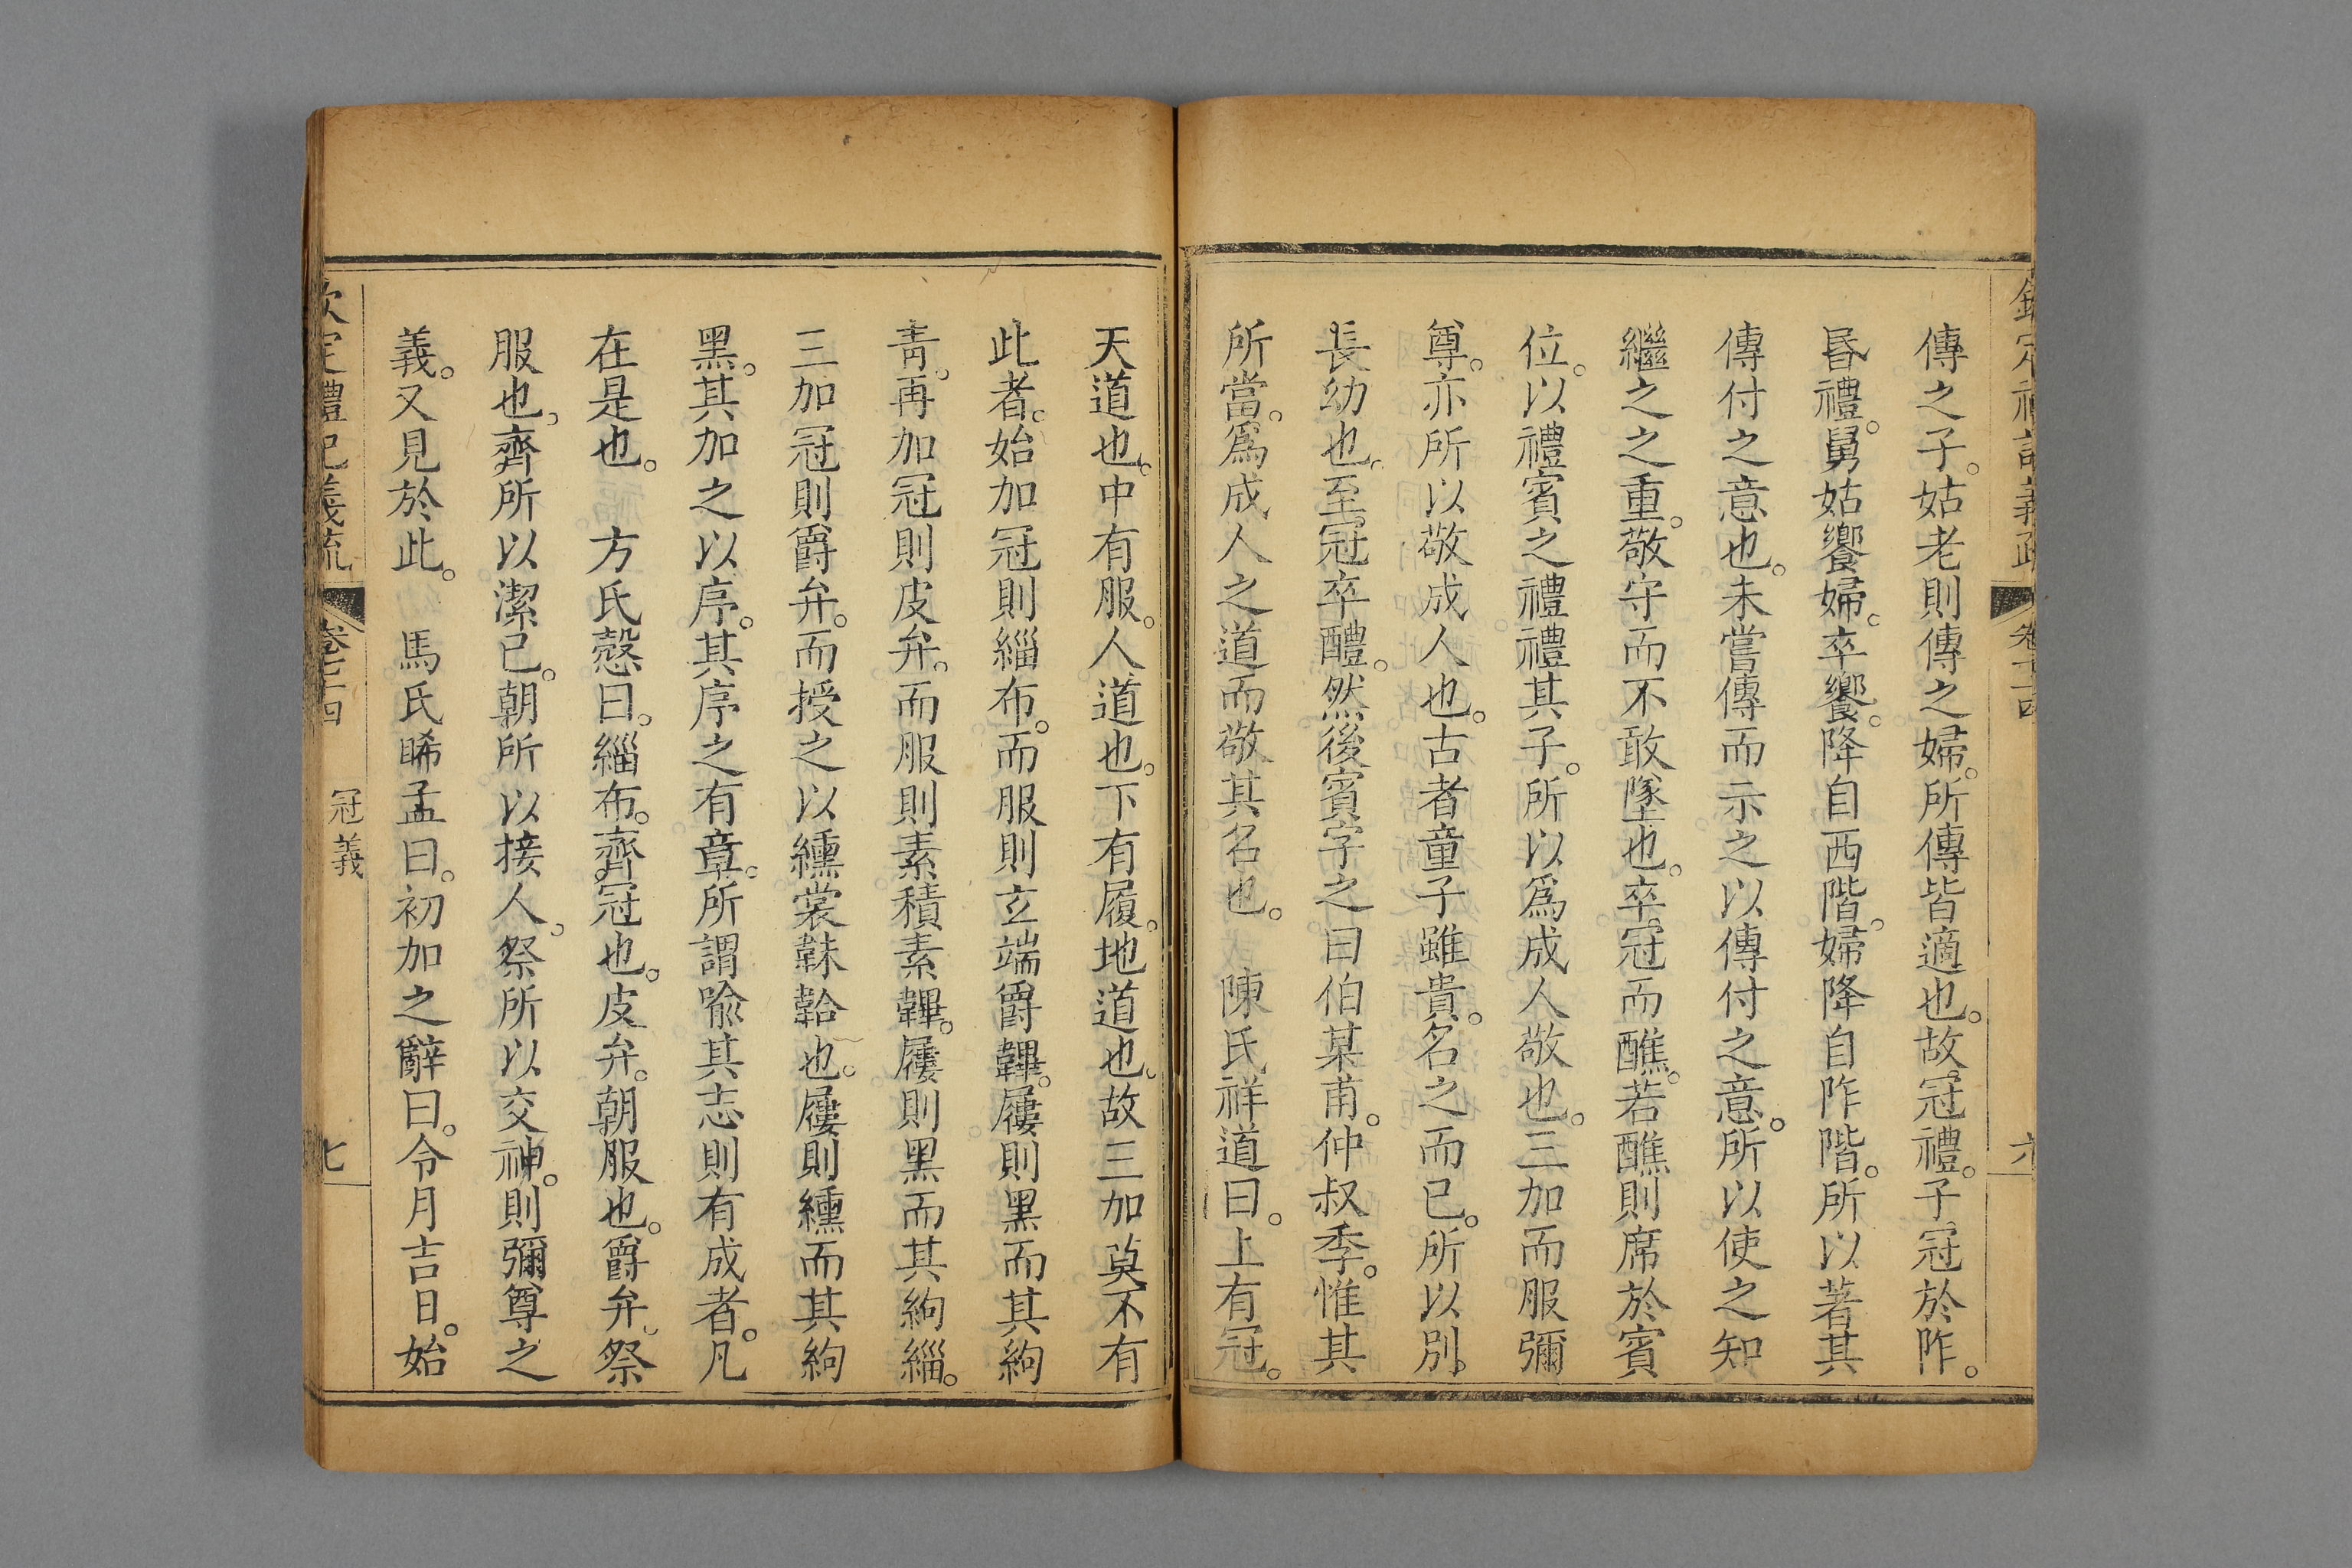 欽定禮記義疏 卷七十四 六
傳之子。姑老則傳之婦。所傳皆適也。故冠禮。子冠於阼。
昏禮。舅姑饗婦。卒饗。降自西階。婦降自阼階。所以著其
傳付之意也。未嘗傳而示之以傳付之意。所以使之知
繼之之重。敬守而不敢墜也。卒冠而醮。若醮則席於賓
位。以禮賓之禮禮其子。所以爲成人敬也。三加而服彌
尊。亦所以敬成人也。古者童子雖貴。名之而已。所以別
長幼也。至冠卒醴。然後賓字之曰伯某甫。仲叔季。惟其
所當。爲成人之道而敬其名也。 陳氏祥道曰。上有冠。
天道也。中有服。人道也。下有履。地道也。故三加莫不有
此者。始加冠則緇布。而服則玄端爵韠。屨則黑而其絇
青。再加冠則皮弁。而服則素積素韠。屨則黑而其絇緇。
三加冠則爵弁。而授之以纁裳韎韐也。屨則纁而其絇
黑。其加之以序。其序之有章。所謂喻其志則有成者。凡
在是也。 方氏慤曰。緇布。齊冠也。皮弁。朝服也。爵弁。祭
服也。齊所以潔己。朝所以接人。祭所以交神。則彌尊之
義。又見於此。 馬氏晞孟曰。初加之辭曰。令月吉日。始
欽定禮記義疏 卷七十四 冠義 七